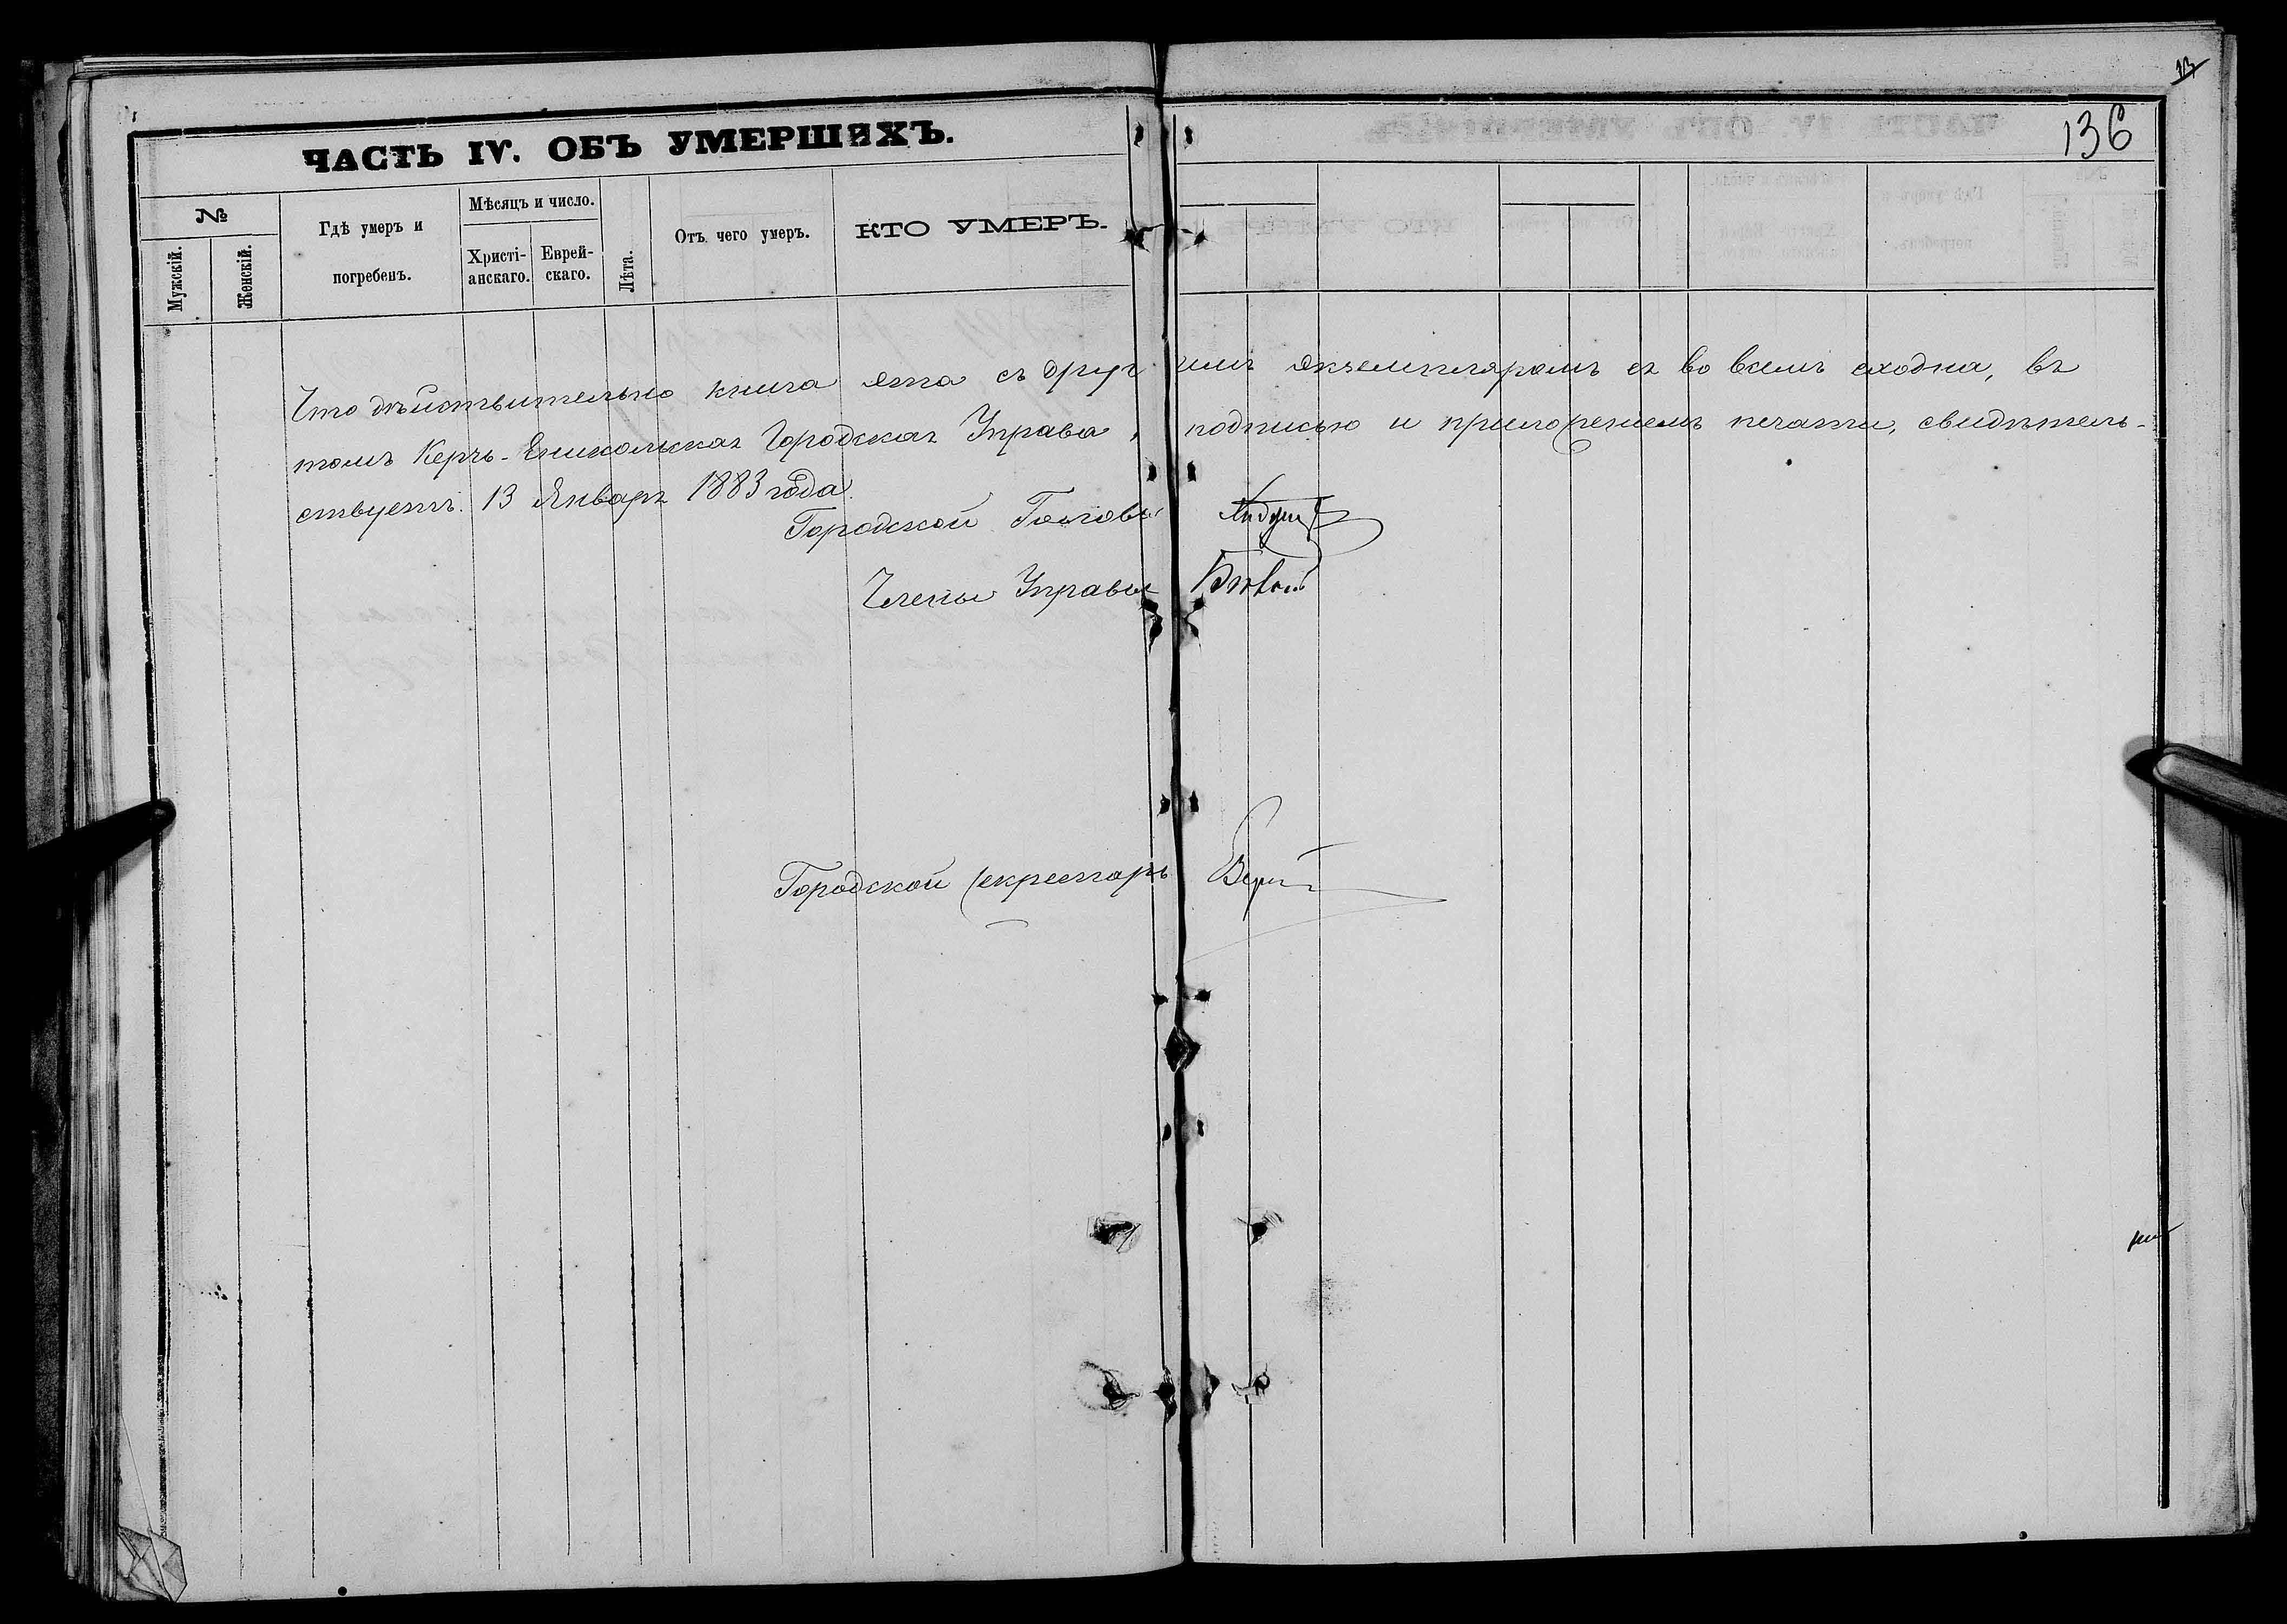 13
136
ЧАСТЬ IV. ОБЪ УМЕРШИХЪ.
№
Мужскій.
Женскій.
Гдѣ умеръ и
погребенъ.
Мѣсяцъ и число.
Христі-
анскаго.
Еврей-
скаго.
Лѣта.
Отъ чего умеръ.
КТО УМЕРЪ.
Что дѣйствительно книга эта съ другимъ экземпляромъ въ во всемъ сходна, въ
томъ Керчь-Еникольская Городская Управа, подписью и приложеніемъ печати, свидѣтель-
ствуетъ. 13 Января 1883 года.
Городской Голова
Члены Управы
Городской Секретарь